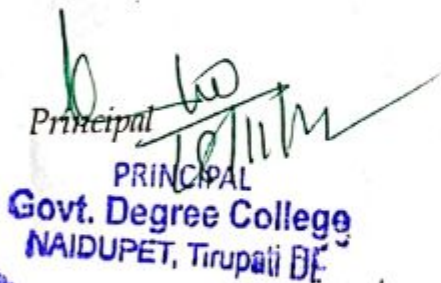 Principal
PRINCIPAL
Govt. Degree College
NAIDUPET, Tirupati